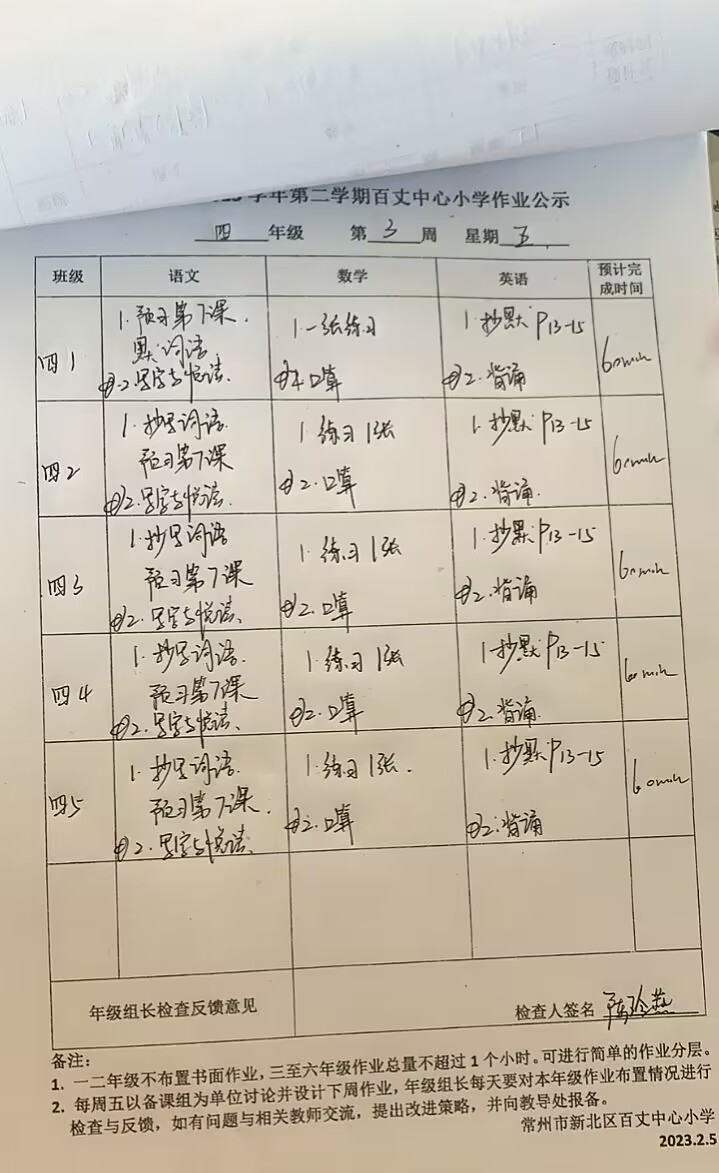 学年第二学期百丈中心小学作业公示
四 年级 第 3 周 星期 五
班级 语文 数学 英语 预计完成时间
四1
1. 预习第7课.
默词语
2. 写字与悦读.
1 一张练习
2. 口算
1. 抄默 P13-15
2. 背诵
60min
四2
1. 抄写词语.
预习第7课
2. 写字与悦读.
1 练习1张
2. 口算
1. 抄默 P13-15
2. 背诵.
60min
四3
1. 抄写词语
预习第7课
2. 写字与悦读.
1. 练习1张
2. 口算
1. 抄默 P13-15
2. 背诵
60min
四4
1. 抄写词语.
预习第7课
2. 写字与悦读.
1. 练习1张
2. 口算
1. 抄默 P13-15
2. 背诵
60min
四5
1. 抄写词语.
预习第7课.
2. 写字与悦读.
1. 练习1张.
2. 口算
1. 抄默 P13-15
2. 背诵
60min
年级组长检查反馈意见
检查人签名
备注：
1. 一二年级不布置书面作业，三至六年级作业总量不超过1个小时。可进行简单的作业分层。
2. 每周五以备课组为单位讨论并设计下周作业，年级组长每天要对本年级作业布置情况进行
检查与反馈，如有问题与相关教师交流，提出改进策略，并向教导处报备。
常州市新北区百丈中心小学
2023.2.5